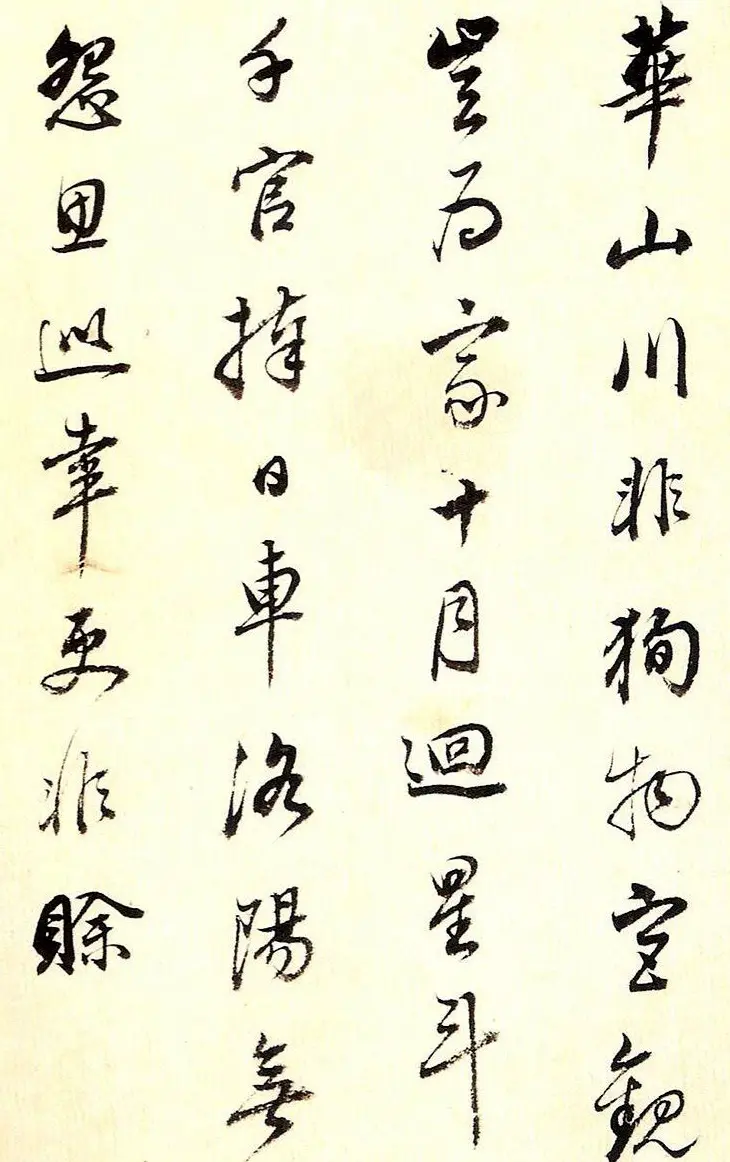 華山川非狥物宫觀
豈为家十月迴星斗
千官捧日車洛陽無
怨思巡幸更非賒